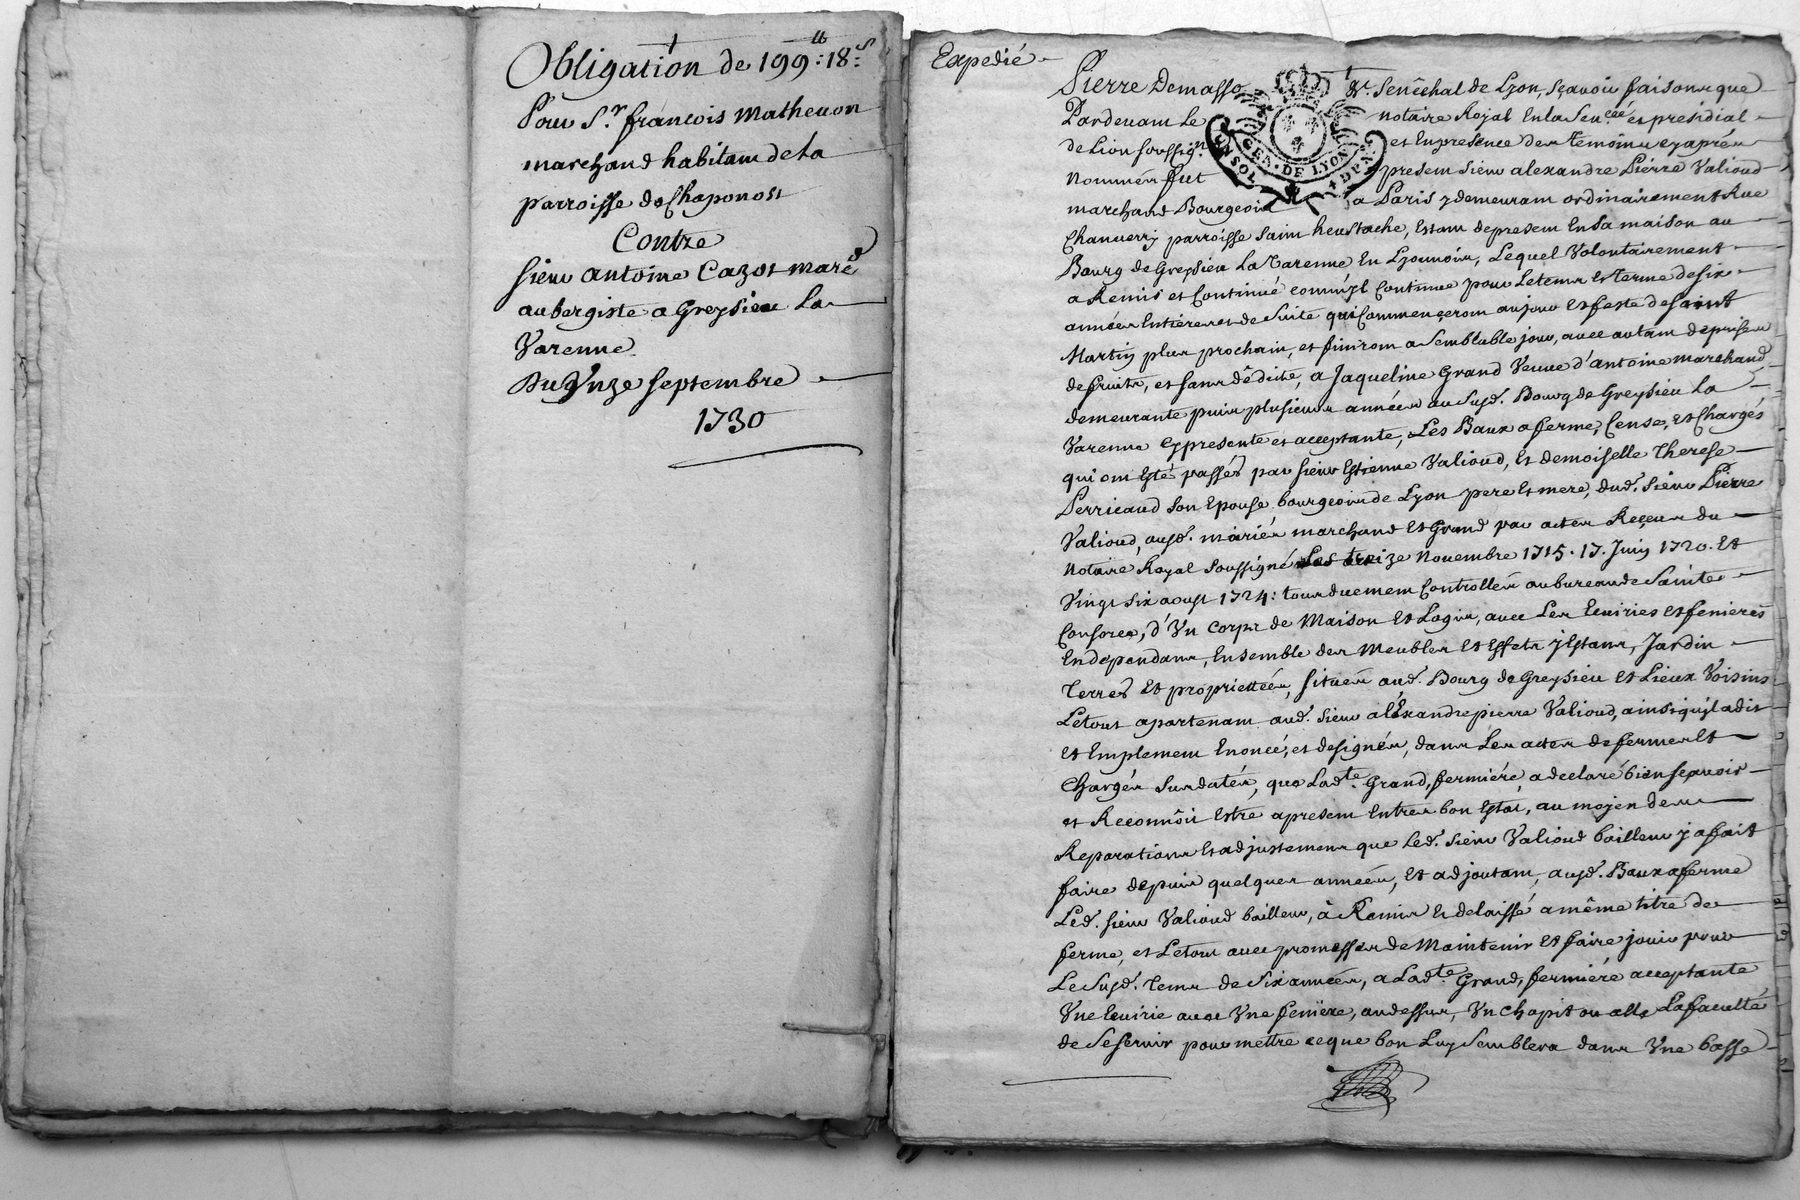 Obligation de 199ᵗᵗ:18ˢ:
Pour Sʳ. françois Matheuon
marchand habitant de la
parroisse de Chaponost
Contre
sieur antoine Cazot marᵈ
aubergiste a Greysieu la
Varenne
Du Unze septembre
1730
Expedié
Pierre Demasso &ᵃ. Senéchal de Lyon, sçavoir faisons que
Pardeuant Le notaire Royal En la Senᶜᵉᵉ et présidial
de Lion soussigné et En presence des temoins cy aprés
Nommés fut present sieur alexandre Pierre Valioud
marchand Bourgeois a Paris y demeurant ordinairement Rue
Chanuerry parroisse saint heustache, Estant depresent En sa maison au
Bourg de Greysieu La Varenne En Lyonnois, Lequel Volontairement
a Remis et Continué comm'jl Continue pour Letems et terme de six
années Entieres et de Suite qui Commenceront au jour et feste de saint
Martin plus prochain, et finiront a Semblable jour, avec autant de prises
de fruits, et sans dédite, a Jaqueline Grand Veuue d'antoine marchand
demeurante puis plusieurs années au Susd. Bourg de Greysieu La
Varenne cy presente et acceptante, Les Baux a ferme, Cense, et Chargés
qui ont esté passés par sieur Estienne Valioud, et demoiselle Therese
Perricaud son Epouse bourgeois de Lyon pere et mere, dud. sieur Pierre
Valioud, ausd. mariés marchand et Grand par actes Reçeus du
Notaire Royal soussigné Les treize Novembre 1715. 17. Juin 1720. Et
Vingt six aoust 1724: tous duement Controllés au bureau de Sainte
Consorce, d'Vn corps de Maison et Logis, avec Les Ecuiries et fenieres
En dependans, Ensemble des Meubles et Effets y Estans, Jardin
Terres et propriettés, situés aud. Bourg de Greysieu et Lieux Voisins
Letout apartenant aud. sieur aléxandre pierre Valioud, ainsi qu'jl a dit
et Emplement Enoncé, et designés, dans Les actes de fermes et
Chargés susdatés, que Ladᵗᵉ. Grand, fermiére a declaré bien sçavoir
et Reconnoit Estre a present Entres bon Estat, au moyen des
Reparations et adjustemens que Led. sieur Valioud bailleur y a fait
faire depuis quelques années, Et adjoutant, ausd. Baux a ferme
Led. sieur Valioud bailleur, à Remis et delaissé a même titre de
ferme, et Letout avec promesses de Maintenir et faire jouir pour
Le Susd. Tems de six années, a Ladᵗᵉ. Grand, fermiére acceptante
Vne Ecuirie avec Vne feniere, au dessus, Vn Chapit ou elle La faculté
de Se servir pour mettre ce que bon Luy Semblera dans Vne basse
GEN. DE LYON